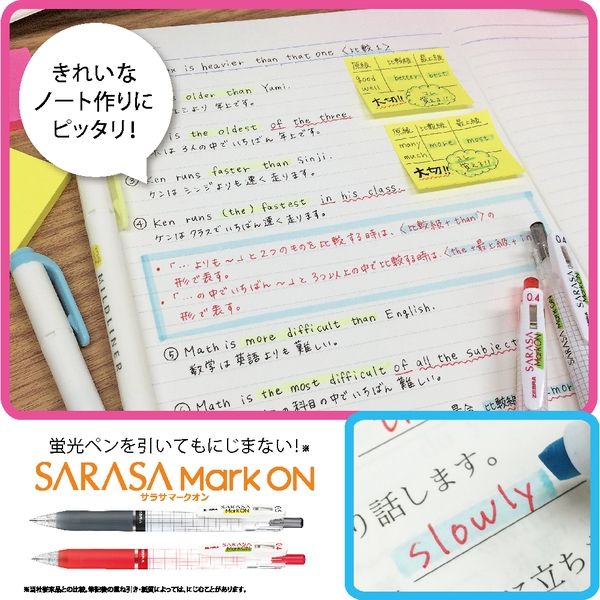 きれいな
ノート作りに
ピッタリ!
is heavier than that one 〈比較 1〉
older than Yumi.
年上です。
is the oldest of the three.
は 3人の中でいちばん 年上です。
③ Ken runs faster than Sinji.
ケンは シンジよりも速く走ります。
④ Ken runs (the) fastest in his class.
ケンは クラスでいちばん速く走ります。
・「…よりも〜」と2つのものを比較する時は、〈比較級+than〉の
形で表す。
・「…の中でいちばん〜」と3つ以上の中で比較する時は、〈the+最上級+in
形で表す。
⑤ Math is more difficult than English.
数学は英語よりも難しい。
Math is the most difficult of all the subject
の科目の中でいちばん難しい。
原級 比較級 最上級
good better best
well
大切!!
覚えよう
原級 比較級 最上級
many more most
much
大切!!
覚えよう
MIDLINER
0.4
SARASA
Mark ON
ZEBRA
0.4
蛍光ペンを引いてもにじまない!※
SARASA Mark ON
サラサマークオン
SARASA
Mark ON
SARASA
Mark ON
0.4
※当社従来品との比較。筆記後の重ね引き・紙質によっては、にじむことがあります。
り話します。
slowly
に立ち